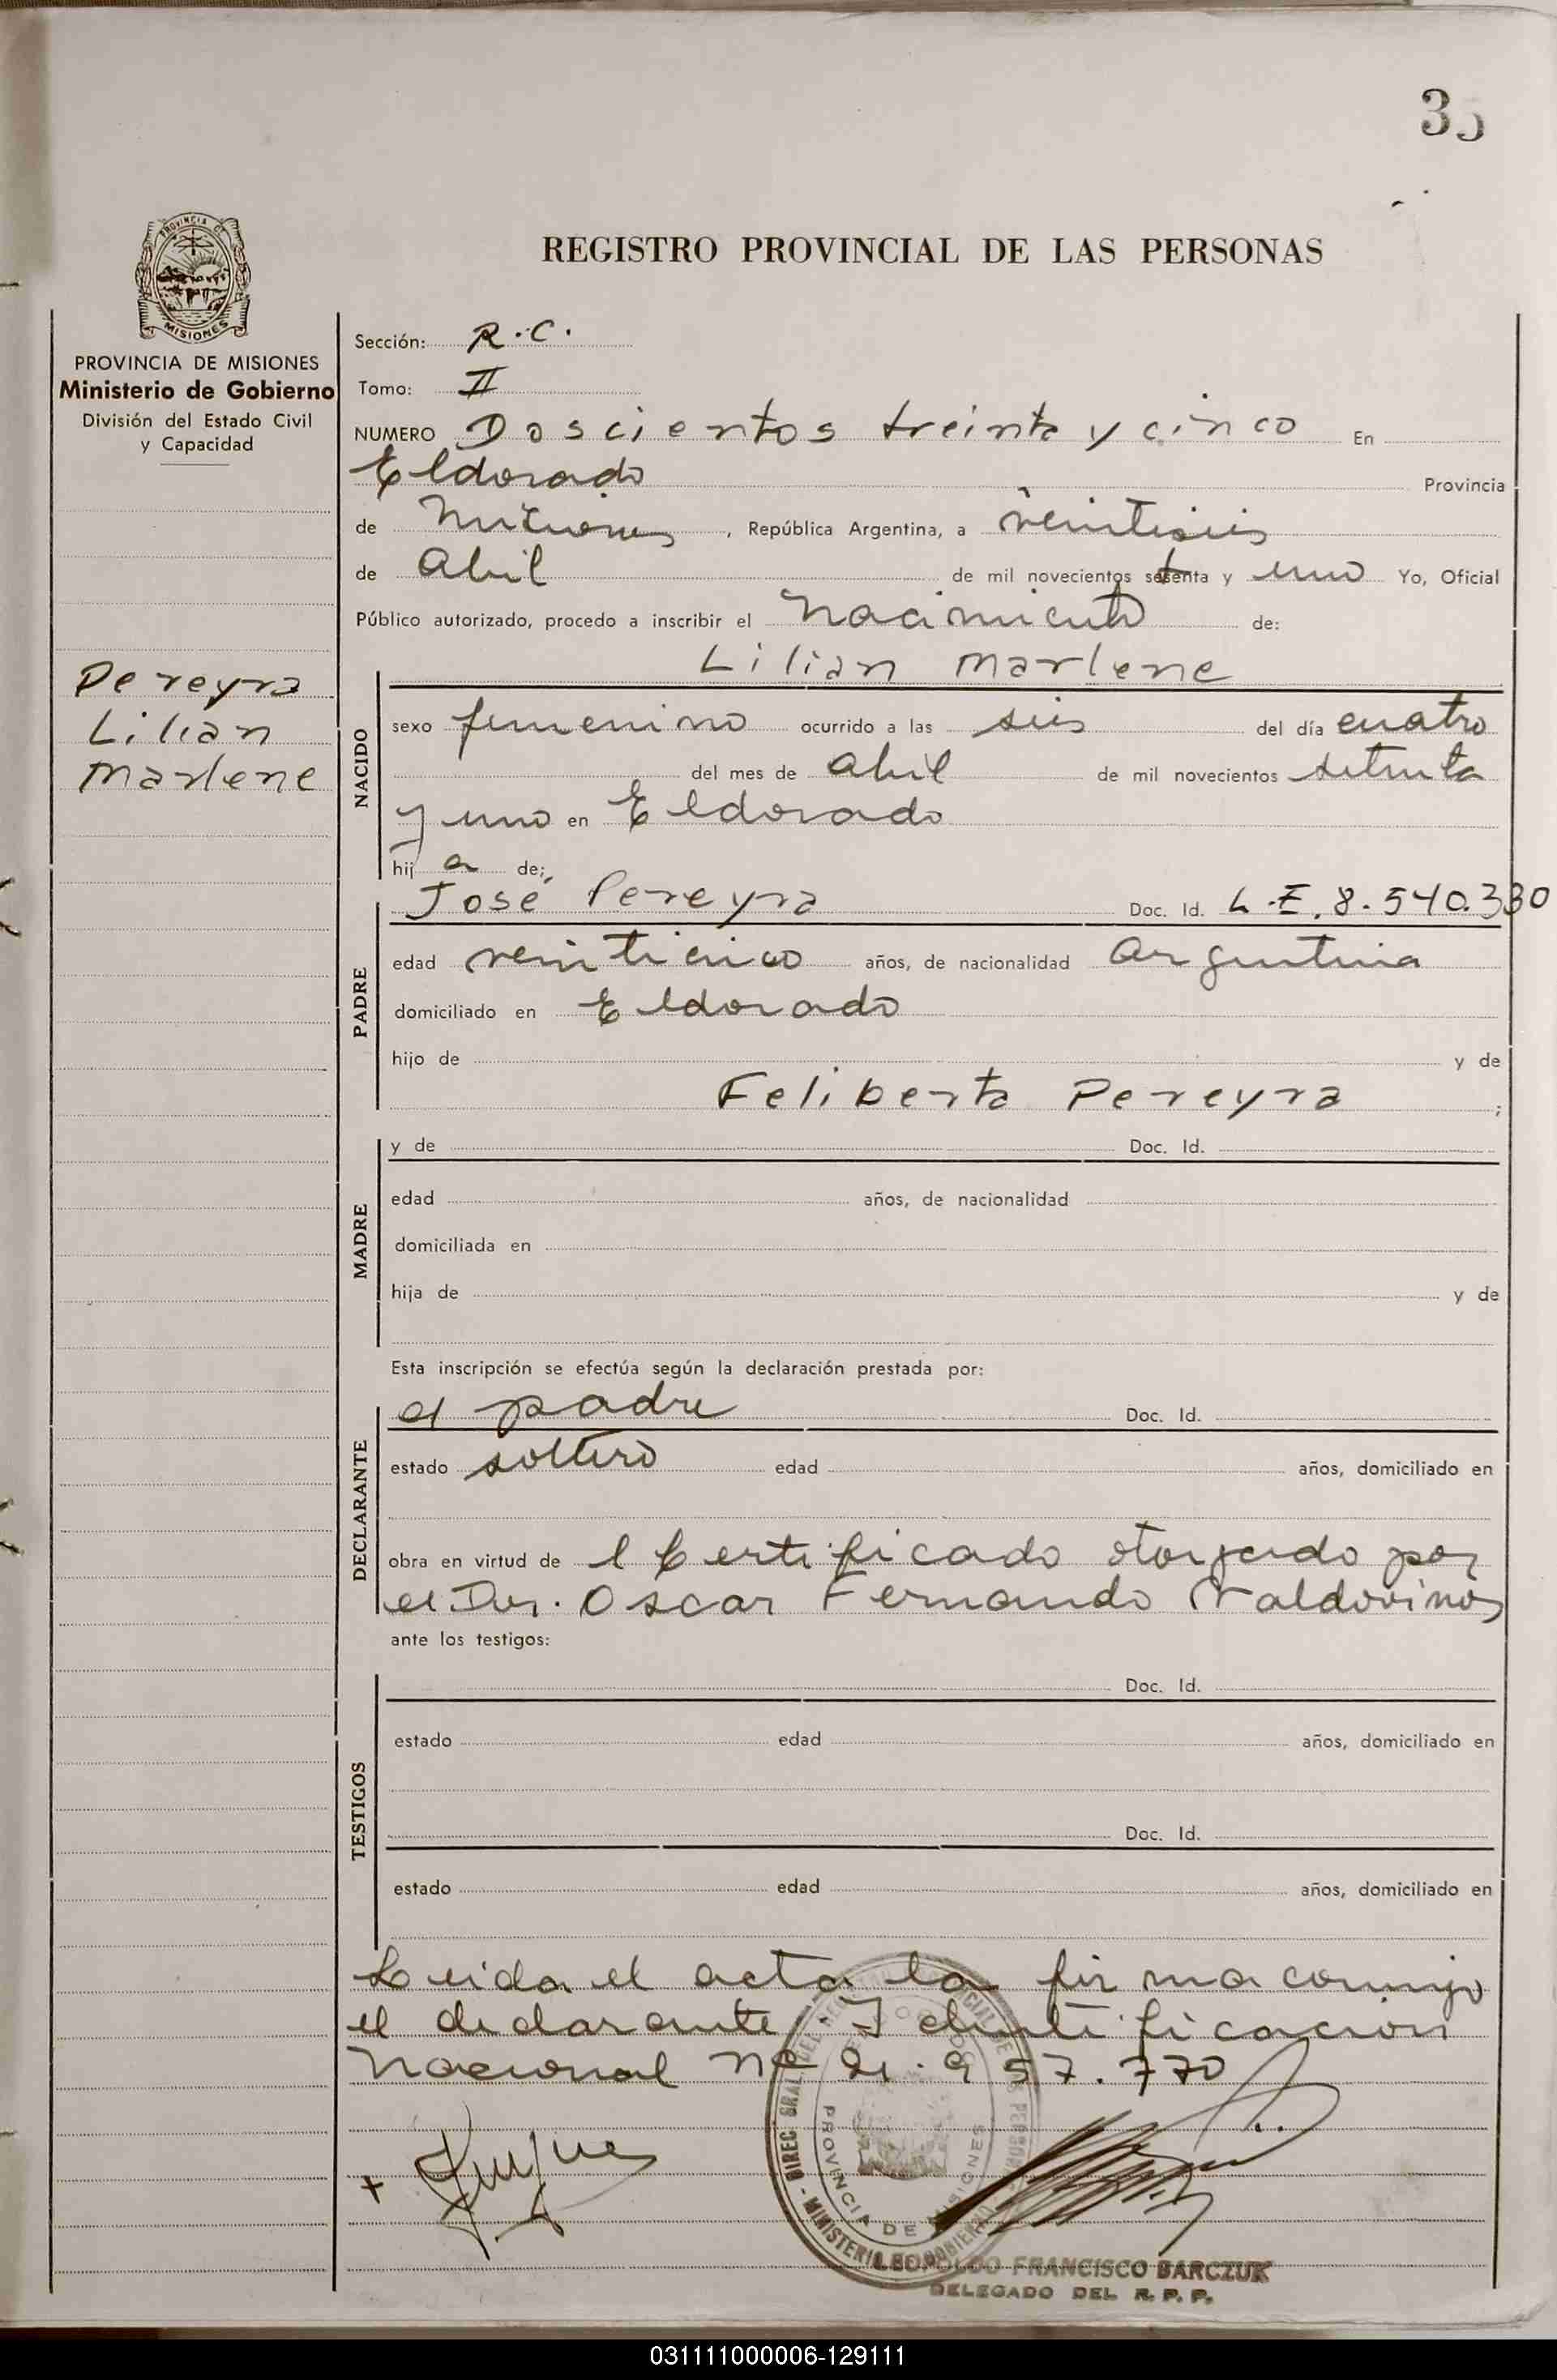 35
REGISTRO PROVINCIAL DE LAS PERSONAS
PROVINCIA DE
MISIONES
PROVINCIA DE MISIONES
Ministerio de Gobierno
División del Estado Civil
y Capacidad
Pereyra
Lilian
Marlene
Sección: R.C.
Tomo: II
NUMERO Doscientos treinta y cinco En
Eldorado Provincia
de Misiones, República Argentina, a veintiseis
de Abril de mil novecientos setenta y uno Yo, Oficial
Público autorizado, procedo a inscribir el Nacimiento de:
Lilian Marlene
NACIDO
sexo femenino ocurrido a las seis del día cuatro
del mes de Abril de mil novecientos setenta
y uno en Eldorado
hij a de;
PADRE
José Pereyra Doc. Id. L.E. 8.540.330
edad veinticinco años, de nacionalidad Argentina
domiciliado en Eldorado
hijo de y de
Feliberta Pereyra ;
MADRE
y de Doc. Id.
edad años, de nacionalidad
domiciliada en
hija de y de
Esta inscripción se efectúa según la declaración prestada por:
DECLARANTE
el padre Doc. Id.
estado soltero edad años, domiciliado en
obra en virtud de l Certificado otorgado por
el Dr. Oscar Fernando Valdovinos
ante los testigos:
TESTIGOS
Doc. Id.
estado edad años, domiciliado en
Doc. Id.
estado edad años, domiciliado en
Leida el acta la firma conmigo
el declarante. Identificación
Nacional Nº 21.957.770
PROVINCIA DE MISIONES
FRANCISCO BARCZUK
DELEGADO DEL R. P. P.
031111000006-129111